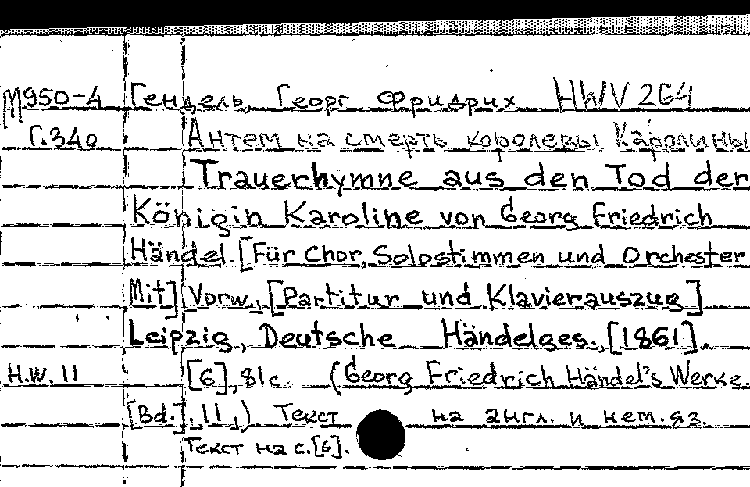 М950-4 Гендель, Георг Фридрих HWV 264
Г.340 Антем на смерть королевы Каролины
Trauerhymne aus den Tod der
Königin Karoline von Georg Friedrich
Händel. [Für Chor, Solostimmen und Orchester
Mit] Vorw., [Partitur und Klavierauszug]
Leipzig, Deutsche Händelges., [1861].
H.W. 11 [6], 81 с. (Georg Friedrich Händel's Werke.
[Bd.], 11,) Текст на англ. и нем.яз.
Текст на с.[6].